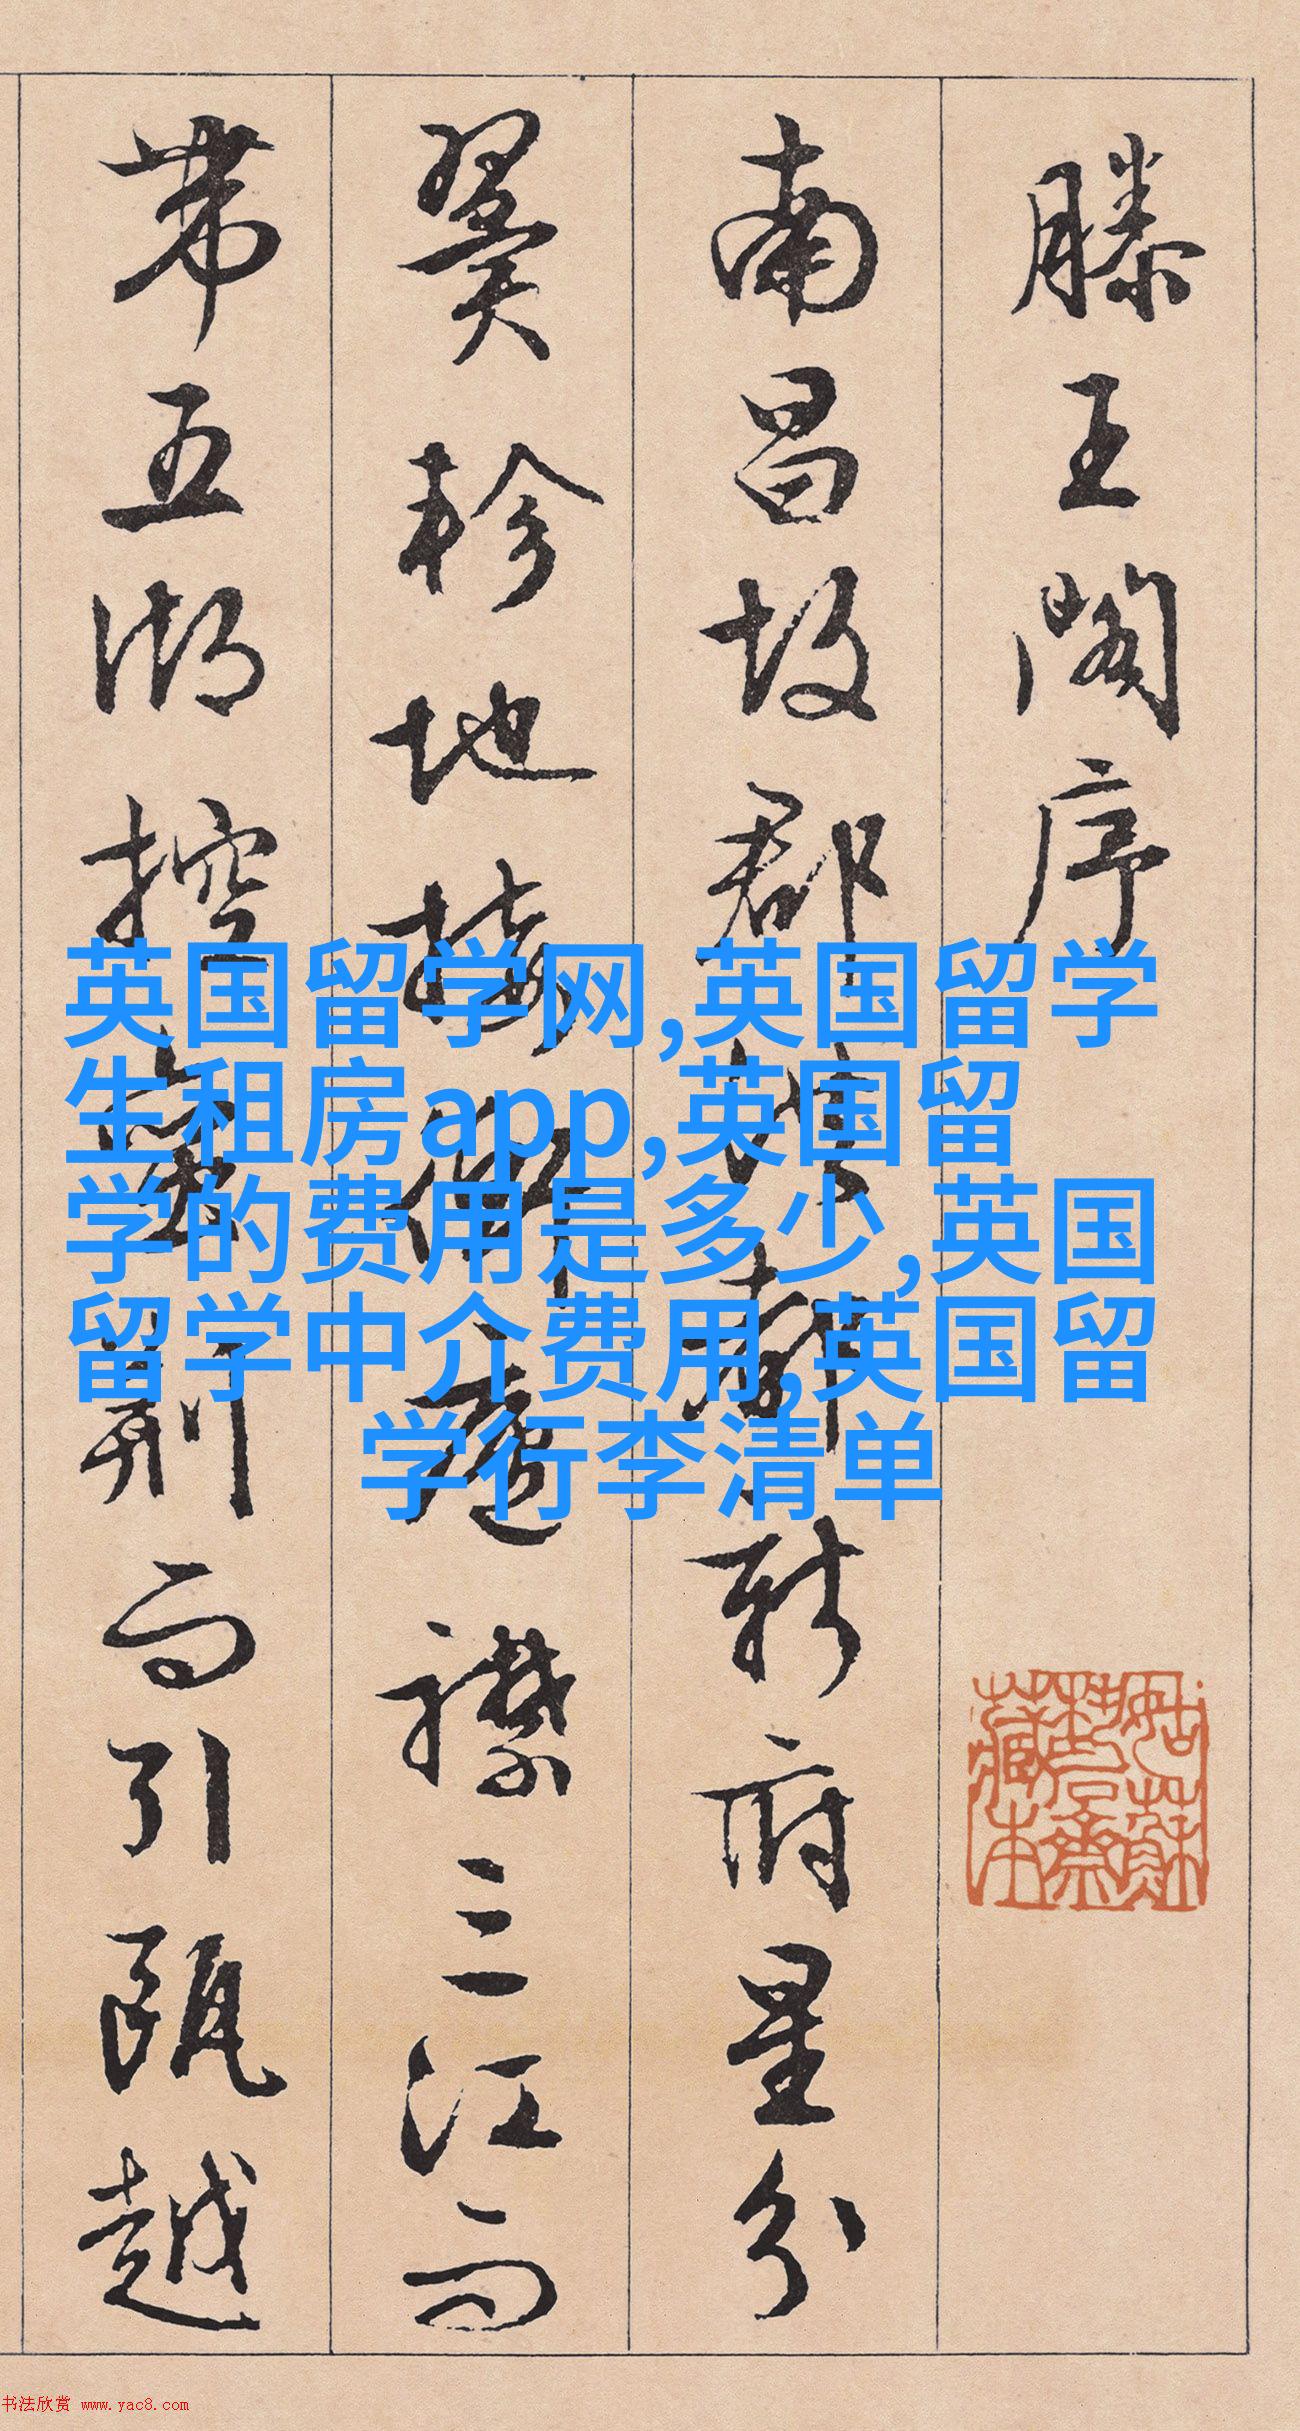 滕王阁序
南昌故郡洪都新府星分
翼轸地接衡庐襟三江而
带五湖控蛮荆而引瓯越
英国留学网,英国留学
生租房app,英国留
学的费用是多少,英国
留学中介费用,英国留
学行李清单
书法欣赏 www.yac8.com